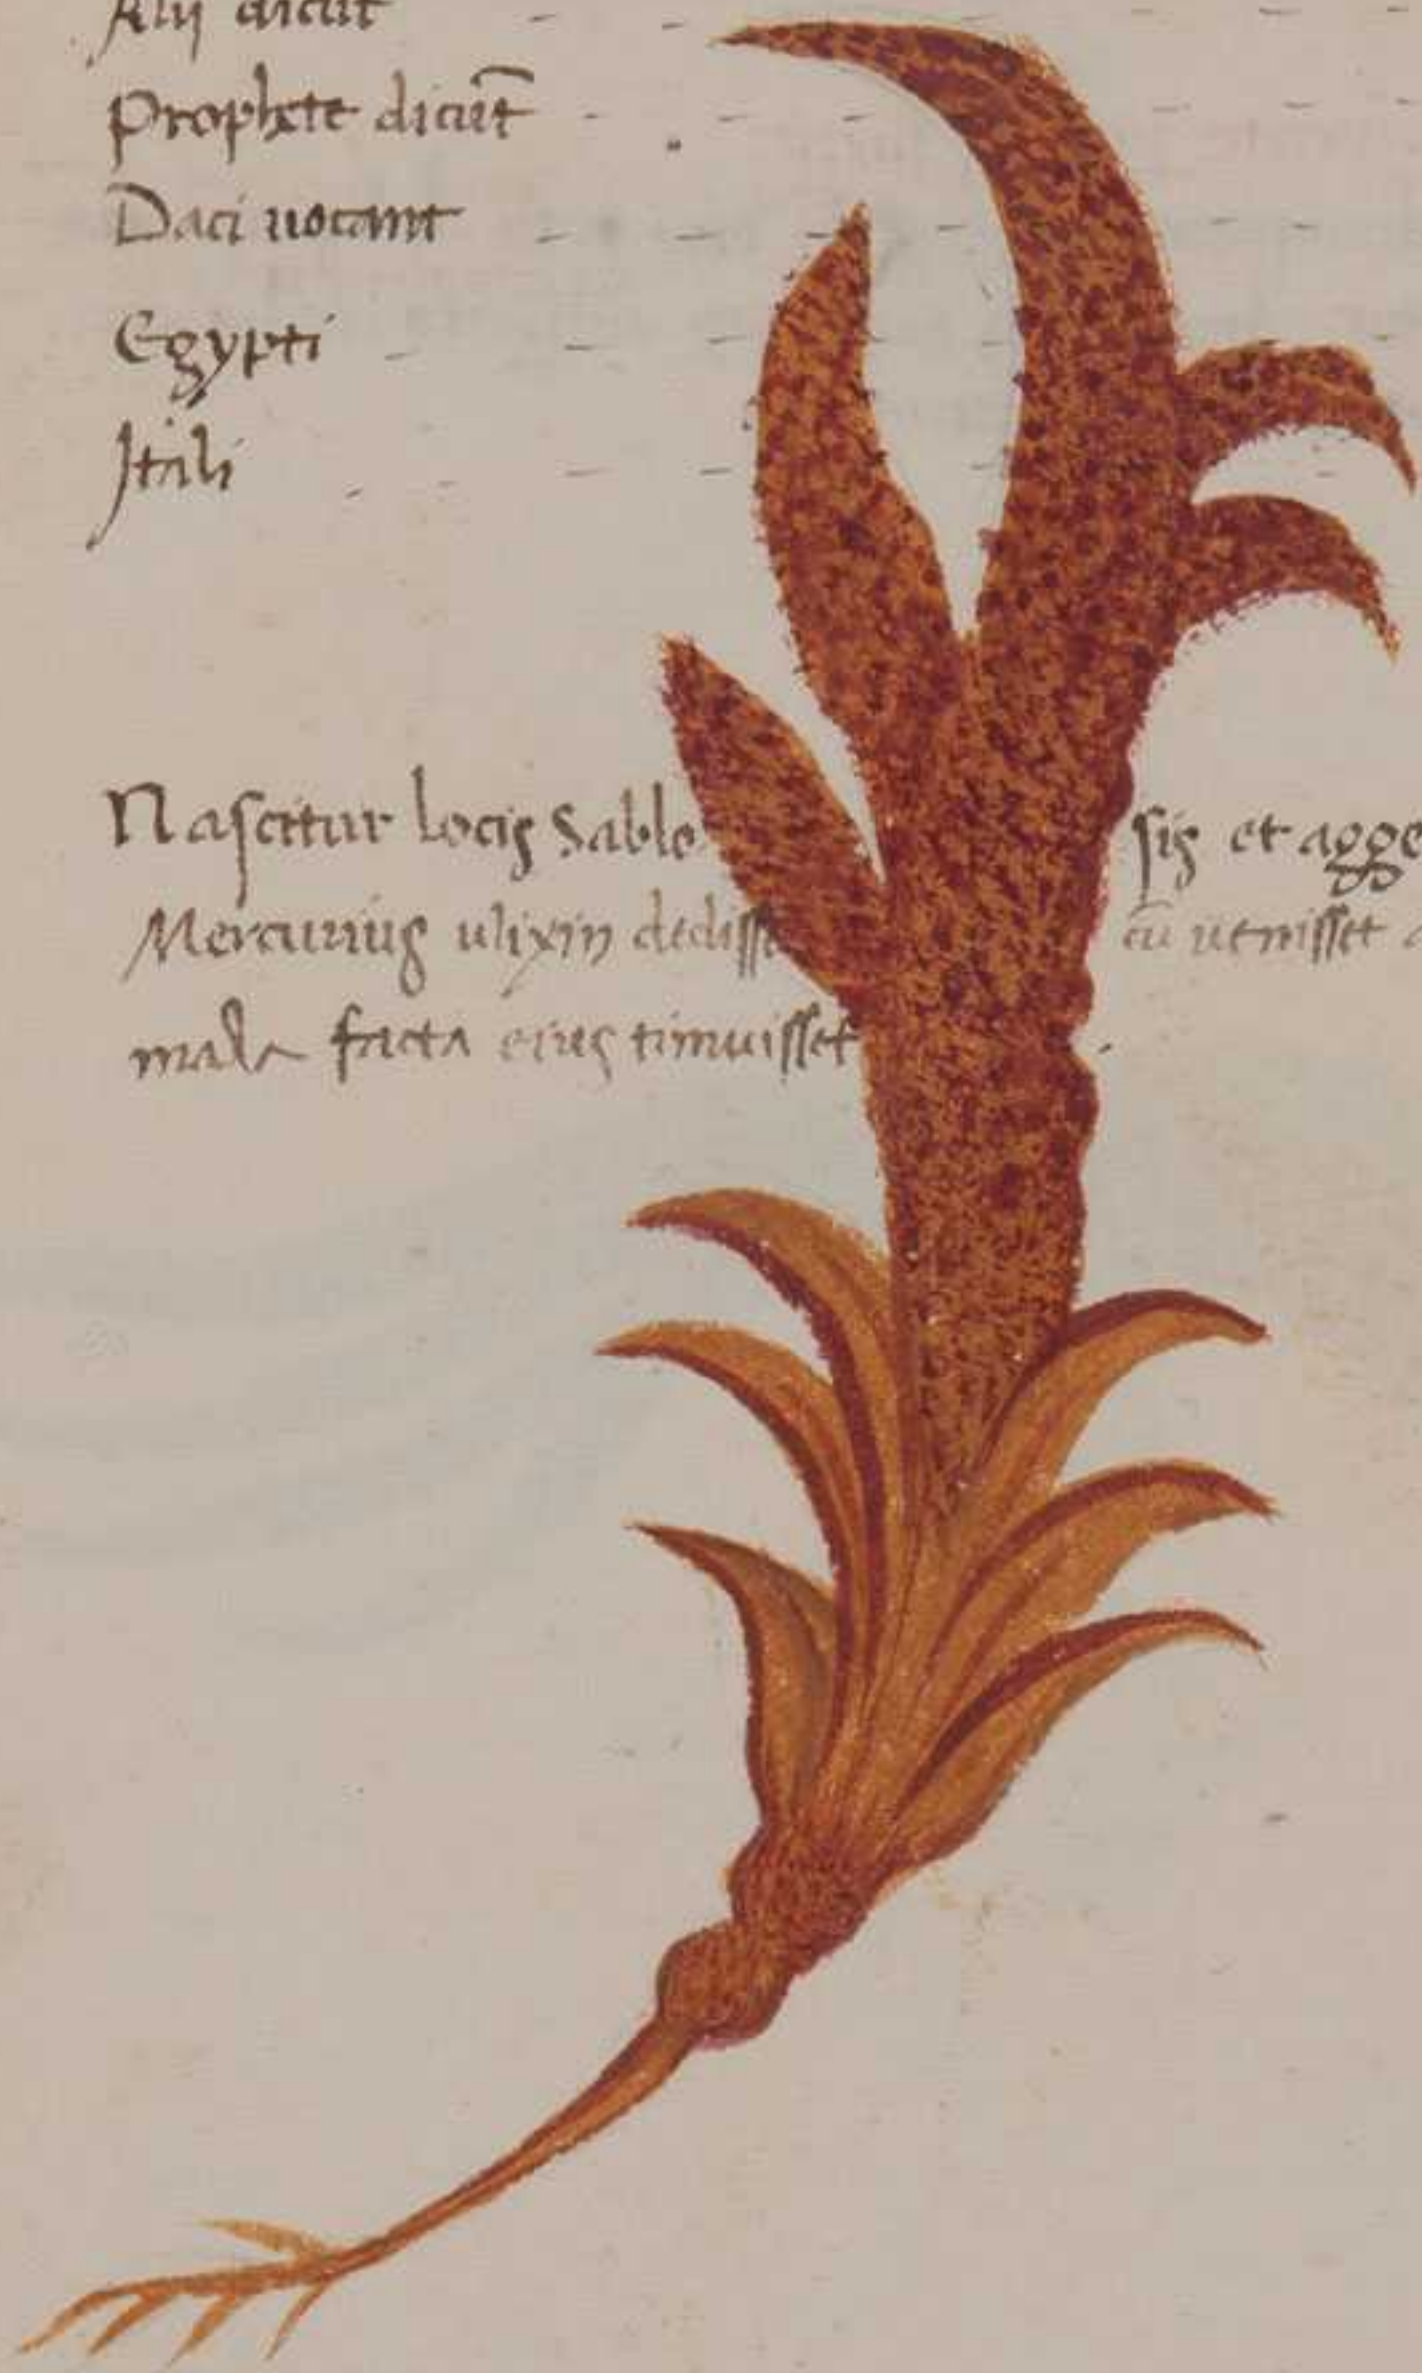 Alij dicūt - - - - -
Prophete dicūt - - - - -
Daci uocant - - - - -
Egypti - - - - -
Itali - - - -
Nascitur locis Sablo sis et agge
Mercurius ulixin dedisse cū uenisset
mala facta eius timuisset